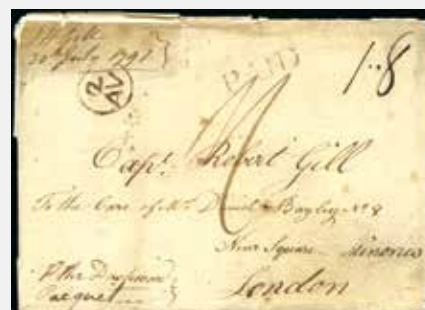 Gill
30th July 1798
2
AV
PAID
1..8
Capt. Robert Gill
To the Care of Mr. Daniel Bayley No 8
New Square Minories
London
Pr the
Pacquet